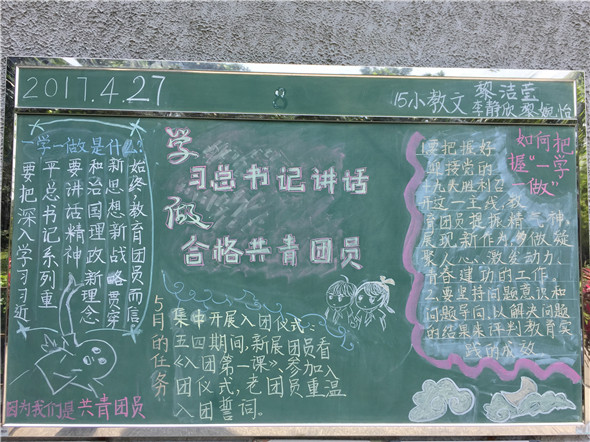 2017.4.27
8
15小教文 黎洁莹
李静欣 黎婉怡
一学一做是什么?
要把深入学习习近
平总书记系列重
要讲话精神
和治国理政新理念
新思想新战略贯穿
始终,教育团员而信
因为我们是共青团员
学
习总书记讲话
做
合格共青团员
5月的任务:
集中开展入团仪式:
五四期间,新展团员看
《入团第一课》、参加入
团仪式,老团员重温
入团誓词。
如何把
握"一学
一做"
1要把握好
迎接党的
十九大胜利召
开这一主线,教
育团员提振精气神,
展现新作为,多做凝
聚人心、激发动力、
青春建功的工作。
2.要坚持问题意识和
问题导向,以解决问题
的结果来评判教育实
践的成效